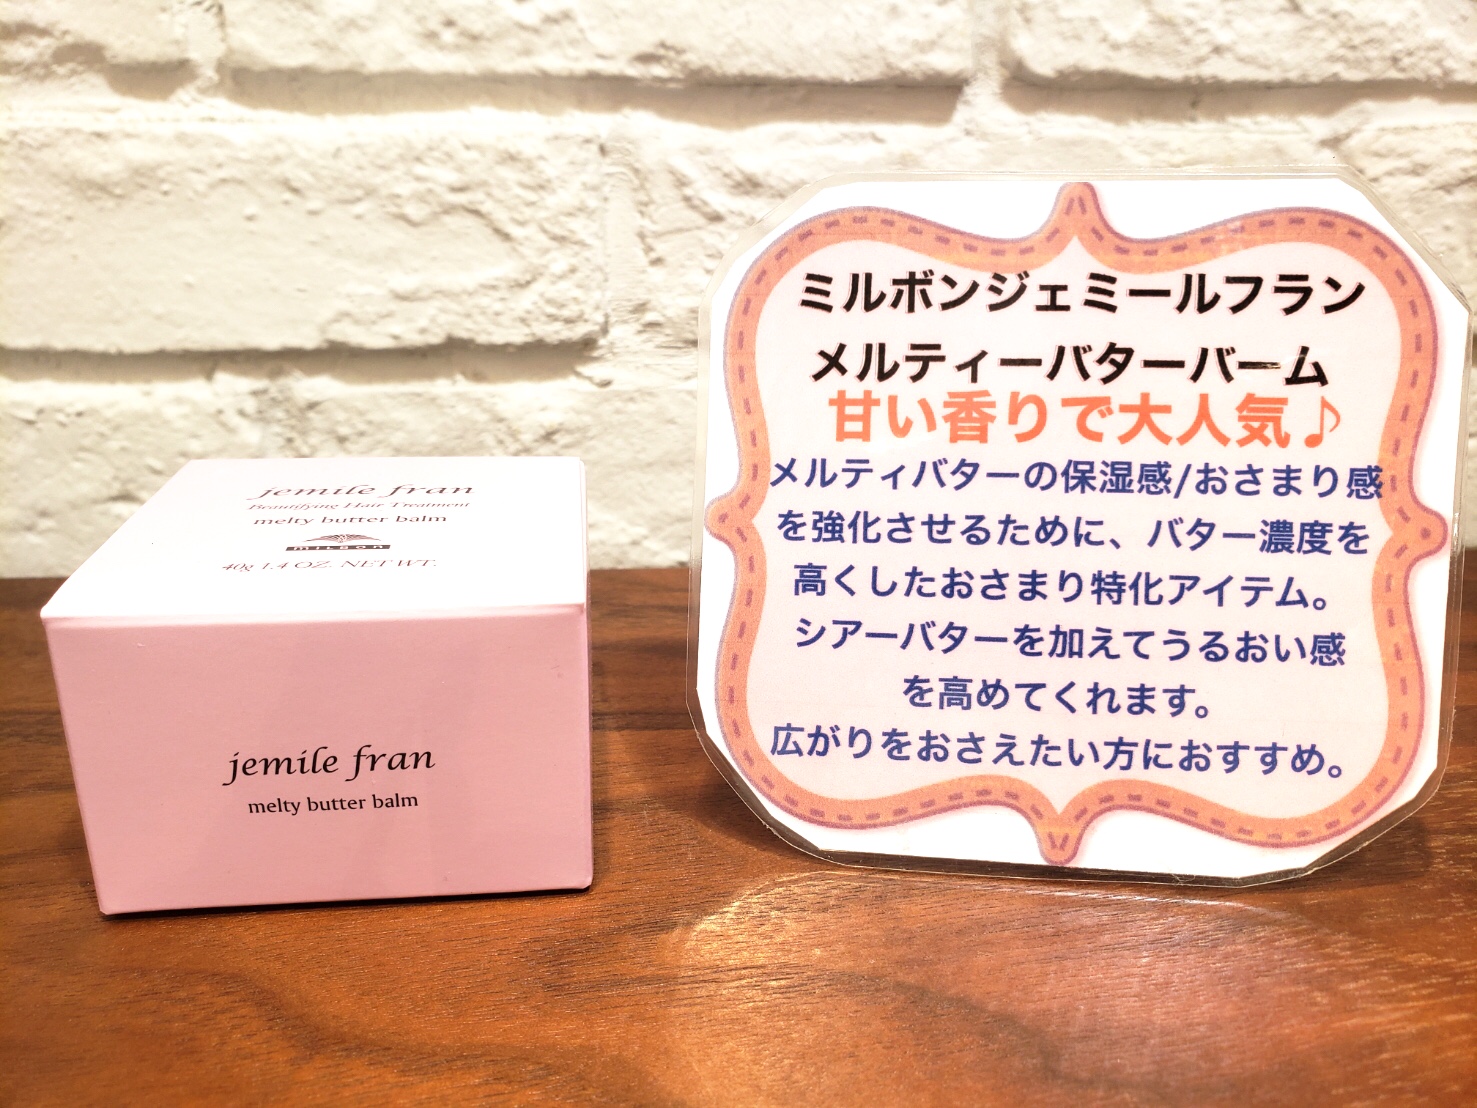 jemile fran
Beautifying Hair Treatment
melty butter balm
MILBON
40g 1.4 OZ. NET WT.
jemile fran
melty butter balm
ミルボンジェミールフラン
メルティーバターバーム
甘い香りで大人気♪
メルティバターの保湿感/おさまり感
を強化させるために、バター濃度を
高くしたおさまり特化アイテム。
シアーバターを加えてうるおい感
を高めてくれます。
広がりをおさえたい方におすすめ。